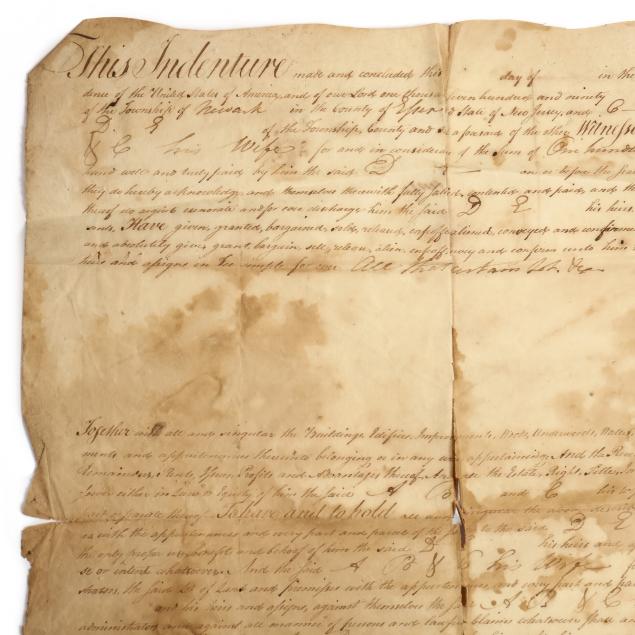 This Indenture made and concluded this day of in the
dence of the United States of America, and of our Lord one thousand seven hundred and ninety
of the Township of Newark in the County of Essex & State of New Jersey, and C
D E of the Township, County and State aforesaid of the other Witnesse
& C his Wife for and in consideration of the Sum of One hundred
hand well and truly paid by him the said D E on or before the
they do hereby acknowledge and themselves therewith fully satisfied, contented and paid, and th
thereof do acquit exonerate and for ever discharge him the said D E his heirs
sents, Have given, granted, bargained, sold, released, enfeoffed aliened, conveyed and confirmed
and absolutely give, grant, bargain, sell, release, alien, enfeoff, convey and confirm unto him
heirs and assigns in fee simple for ever All that certain Lot &c
Together with all and singular the Buildings, Edifices, Improvements, Woods, Underwoods, Water
ments and appurtenances thereunto belonging or in any wise appertaining And the Rev
Remainders, Rents, Issues Profits and Advantages thereof And also the Estate, Right, Title,
power either in Law or Equity of him the said A B and C his
part & parcel thereof To have and to hold all singular the above
es with the appurtenances and every part and parcel to the said D E
the only proper use, benefit and behoof of him the said D his heirs and
se or intent whatsoever. And the said A B & C his Wife
strators, the said Lot of Land and Premisses with the appurtenances, and every part and par
and his heirs and assigns, against themselves the said A B & C
administrators and against all manner of persons and lawful claims whatsoever shall and